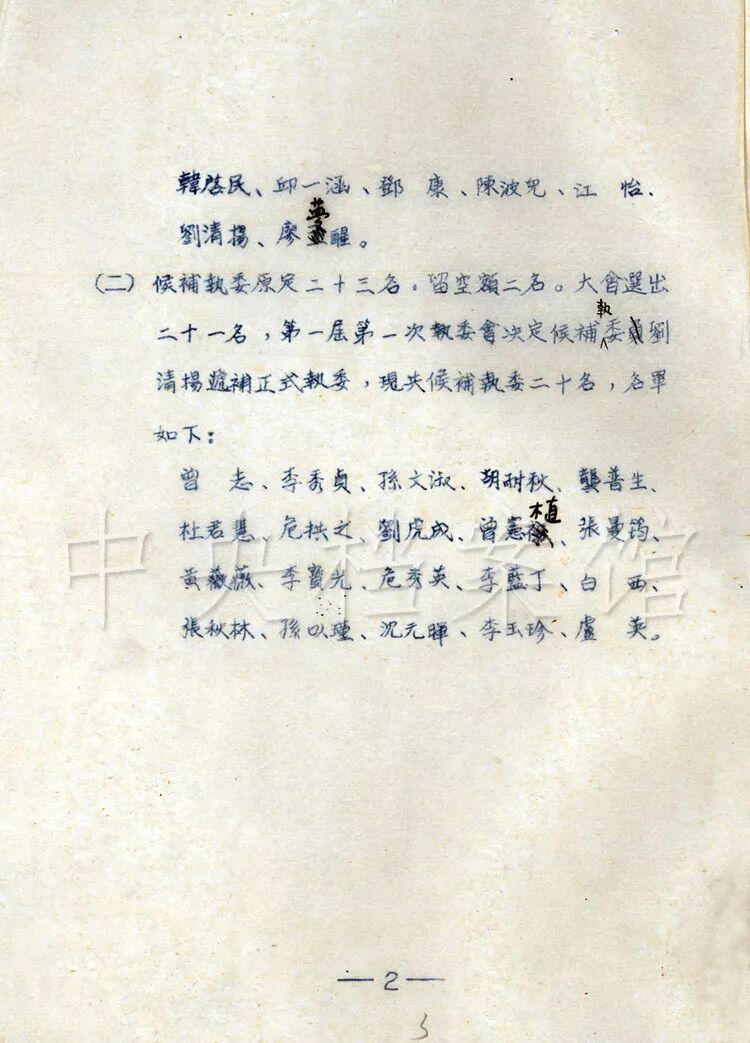 韓啓民、邱一涵、鄧 康、陳波兒、江 怡、
劉清揚、廖夢醒。
(二) 候補執委原定二十三名,留空額二名。大會選出
二十一名,第一届第一次執委會决定候補執委劉
清揚遞補正式執委,現共候補執委二十名,名單
如下:
曾 志、李秀貞、孫文淑、胡耐秋、龔普生、
杜君慧、危拱之、劉虎成、曾憲植、張曼筠、
黄薇薇、李寶光、危秀英、李藍丁、白 西、
張秋林、孫以瑾、沈元暉、李玉珍、盧 英。
中央档案馆
—2—
3